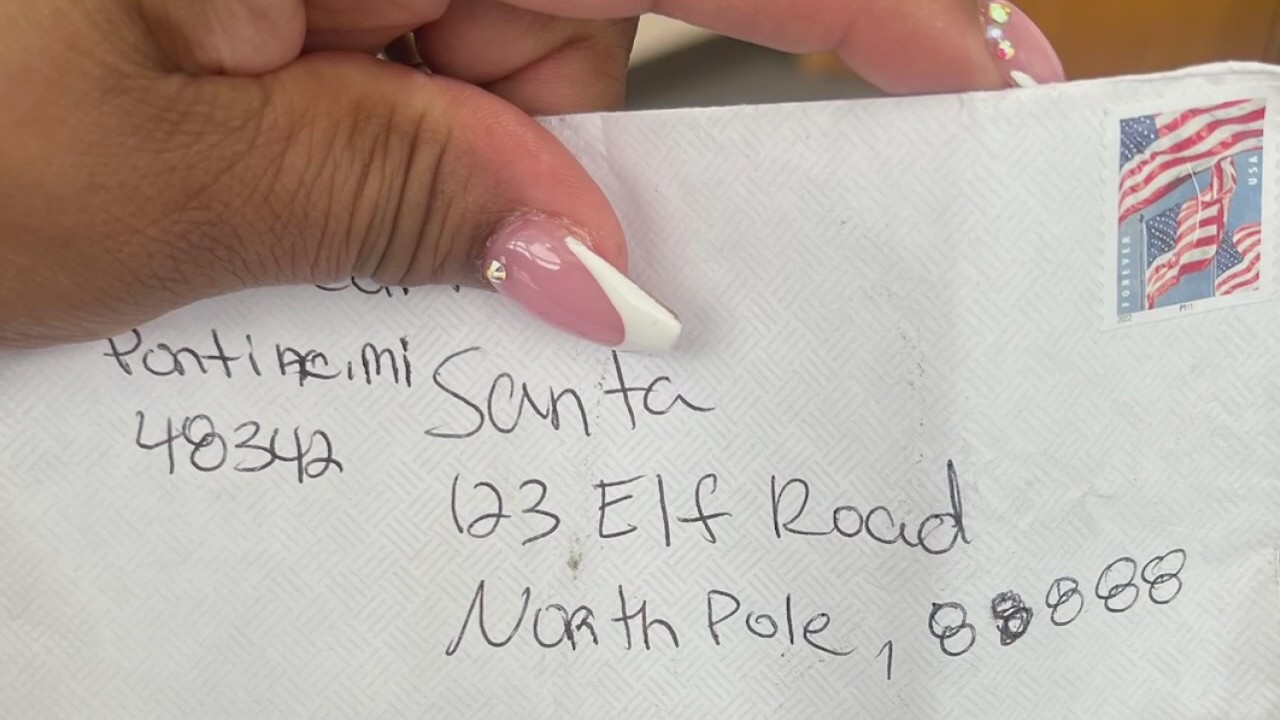 Pontiac, mi
48342
Santa
123 Elf Road
North Pole, 88888
FOREVER
USA
2022